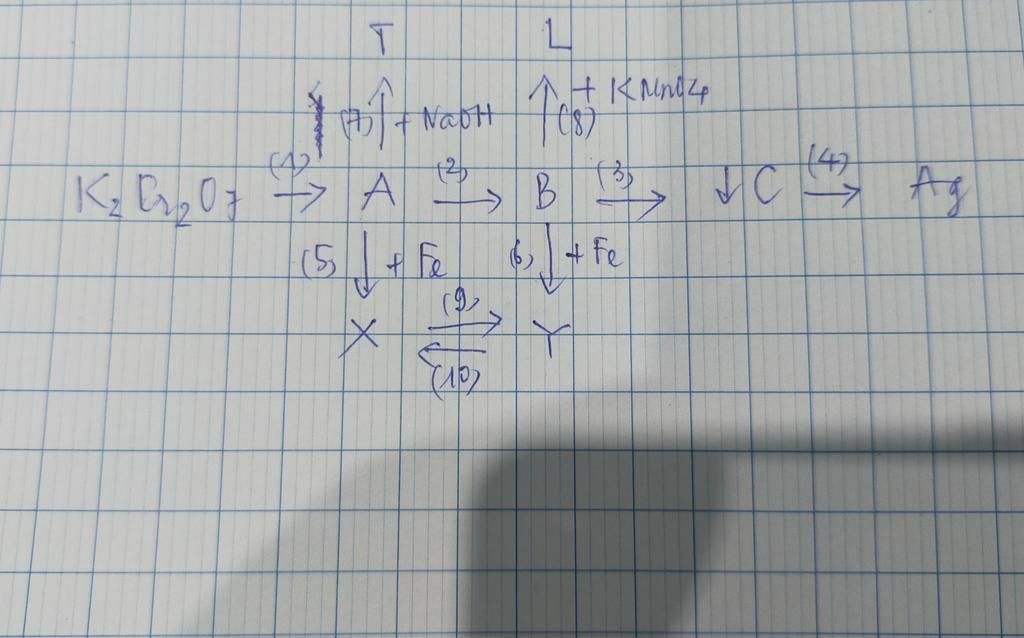 T L
(7) + NaOH (8) + KMnO4
K2Cr2O7 (1) → A (2) → B (3) → ↓ C (4) → Ag
(5) ↓ + Fe (6) ↓ + Fe
X (9) → Y
← (10)